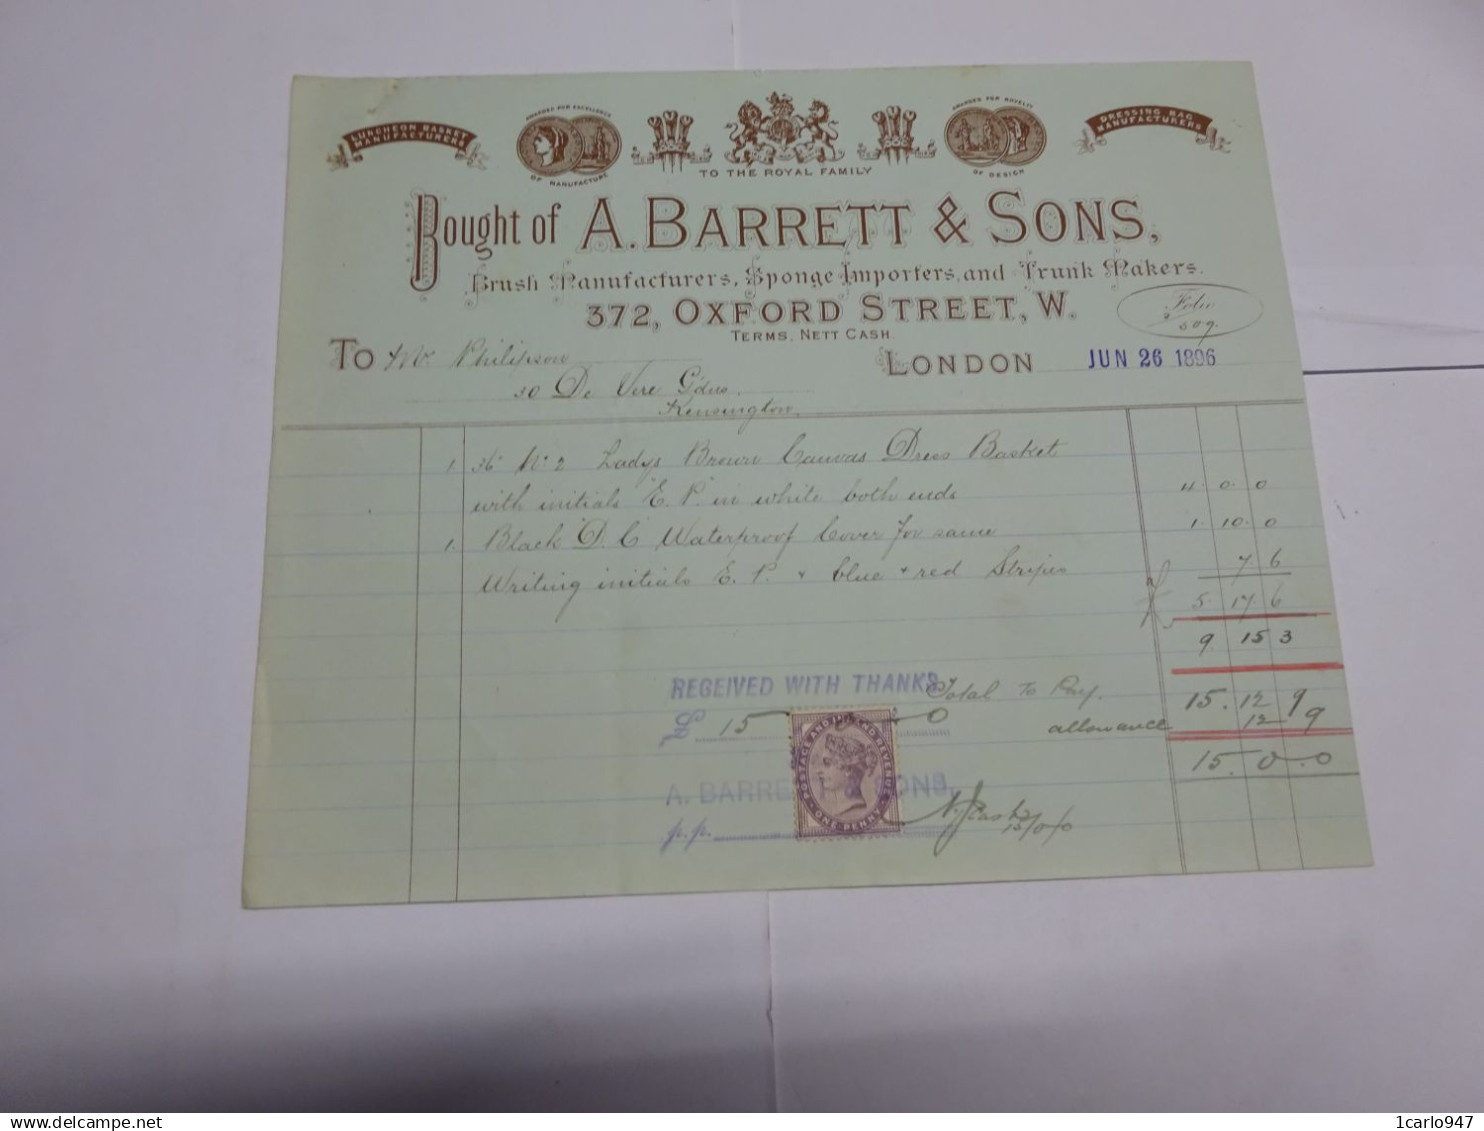 LUNCHEON BASKET
MANUFACTURERS
AWARDED FOR EXCELLENCE
OF MANUFACTURE
TO THE ROYAL FAMILY
AWARDED FOR NOVELTY
OF DESIGN
DRESSING BAG
MANUFACTURERS
Bought of A. BARRETT & SONS,
Brush Manufacturers, Sponge Importers, and Trunk Makers.
372, OXFORD STREET, W.
TERMS, NETT CASH
Folio
509.
To Philipson
LONDON JUN 26 1896
30 De Vere Gdns.
Kensington.
1. 36 No 2 Ladys Brown Canvas Dress Basket
with initials "E. P." in white both ends 4. 0. 0
1. Black D. C Waterproof Cover for same 1. 10. 0
Writing initials E. P. + blue + red Stripes 7. 6
5. 17. 6
9 15 3
RECEIVED WITH THANKS
Total To Pay. 15. 12 9
£ 15 0
allowance 12 9
15. 0. 0
A. BARRETT & SONS,
p.p.
POSTAGE AND INLAND REVENUE
ONE PENNY
1carlo947